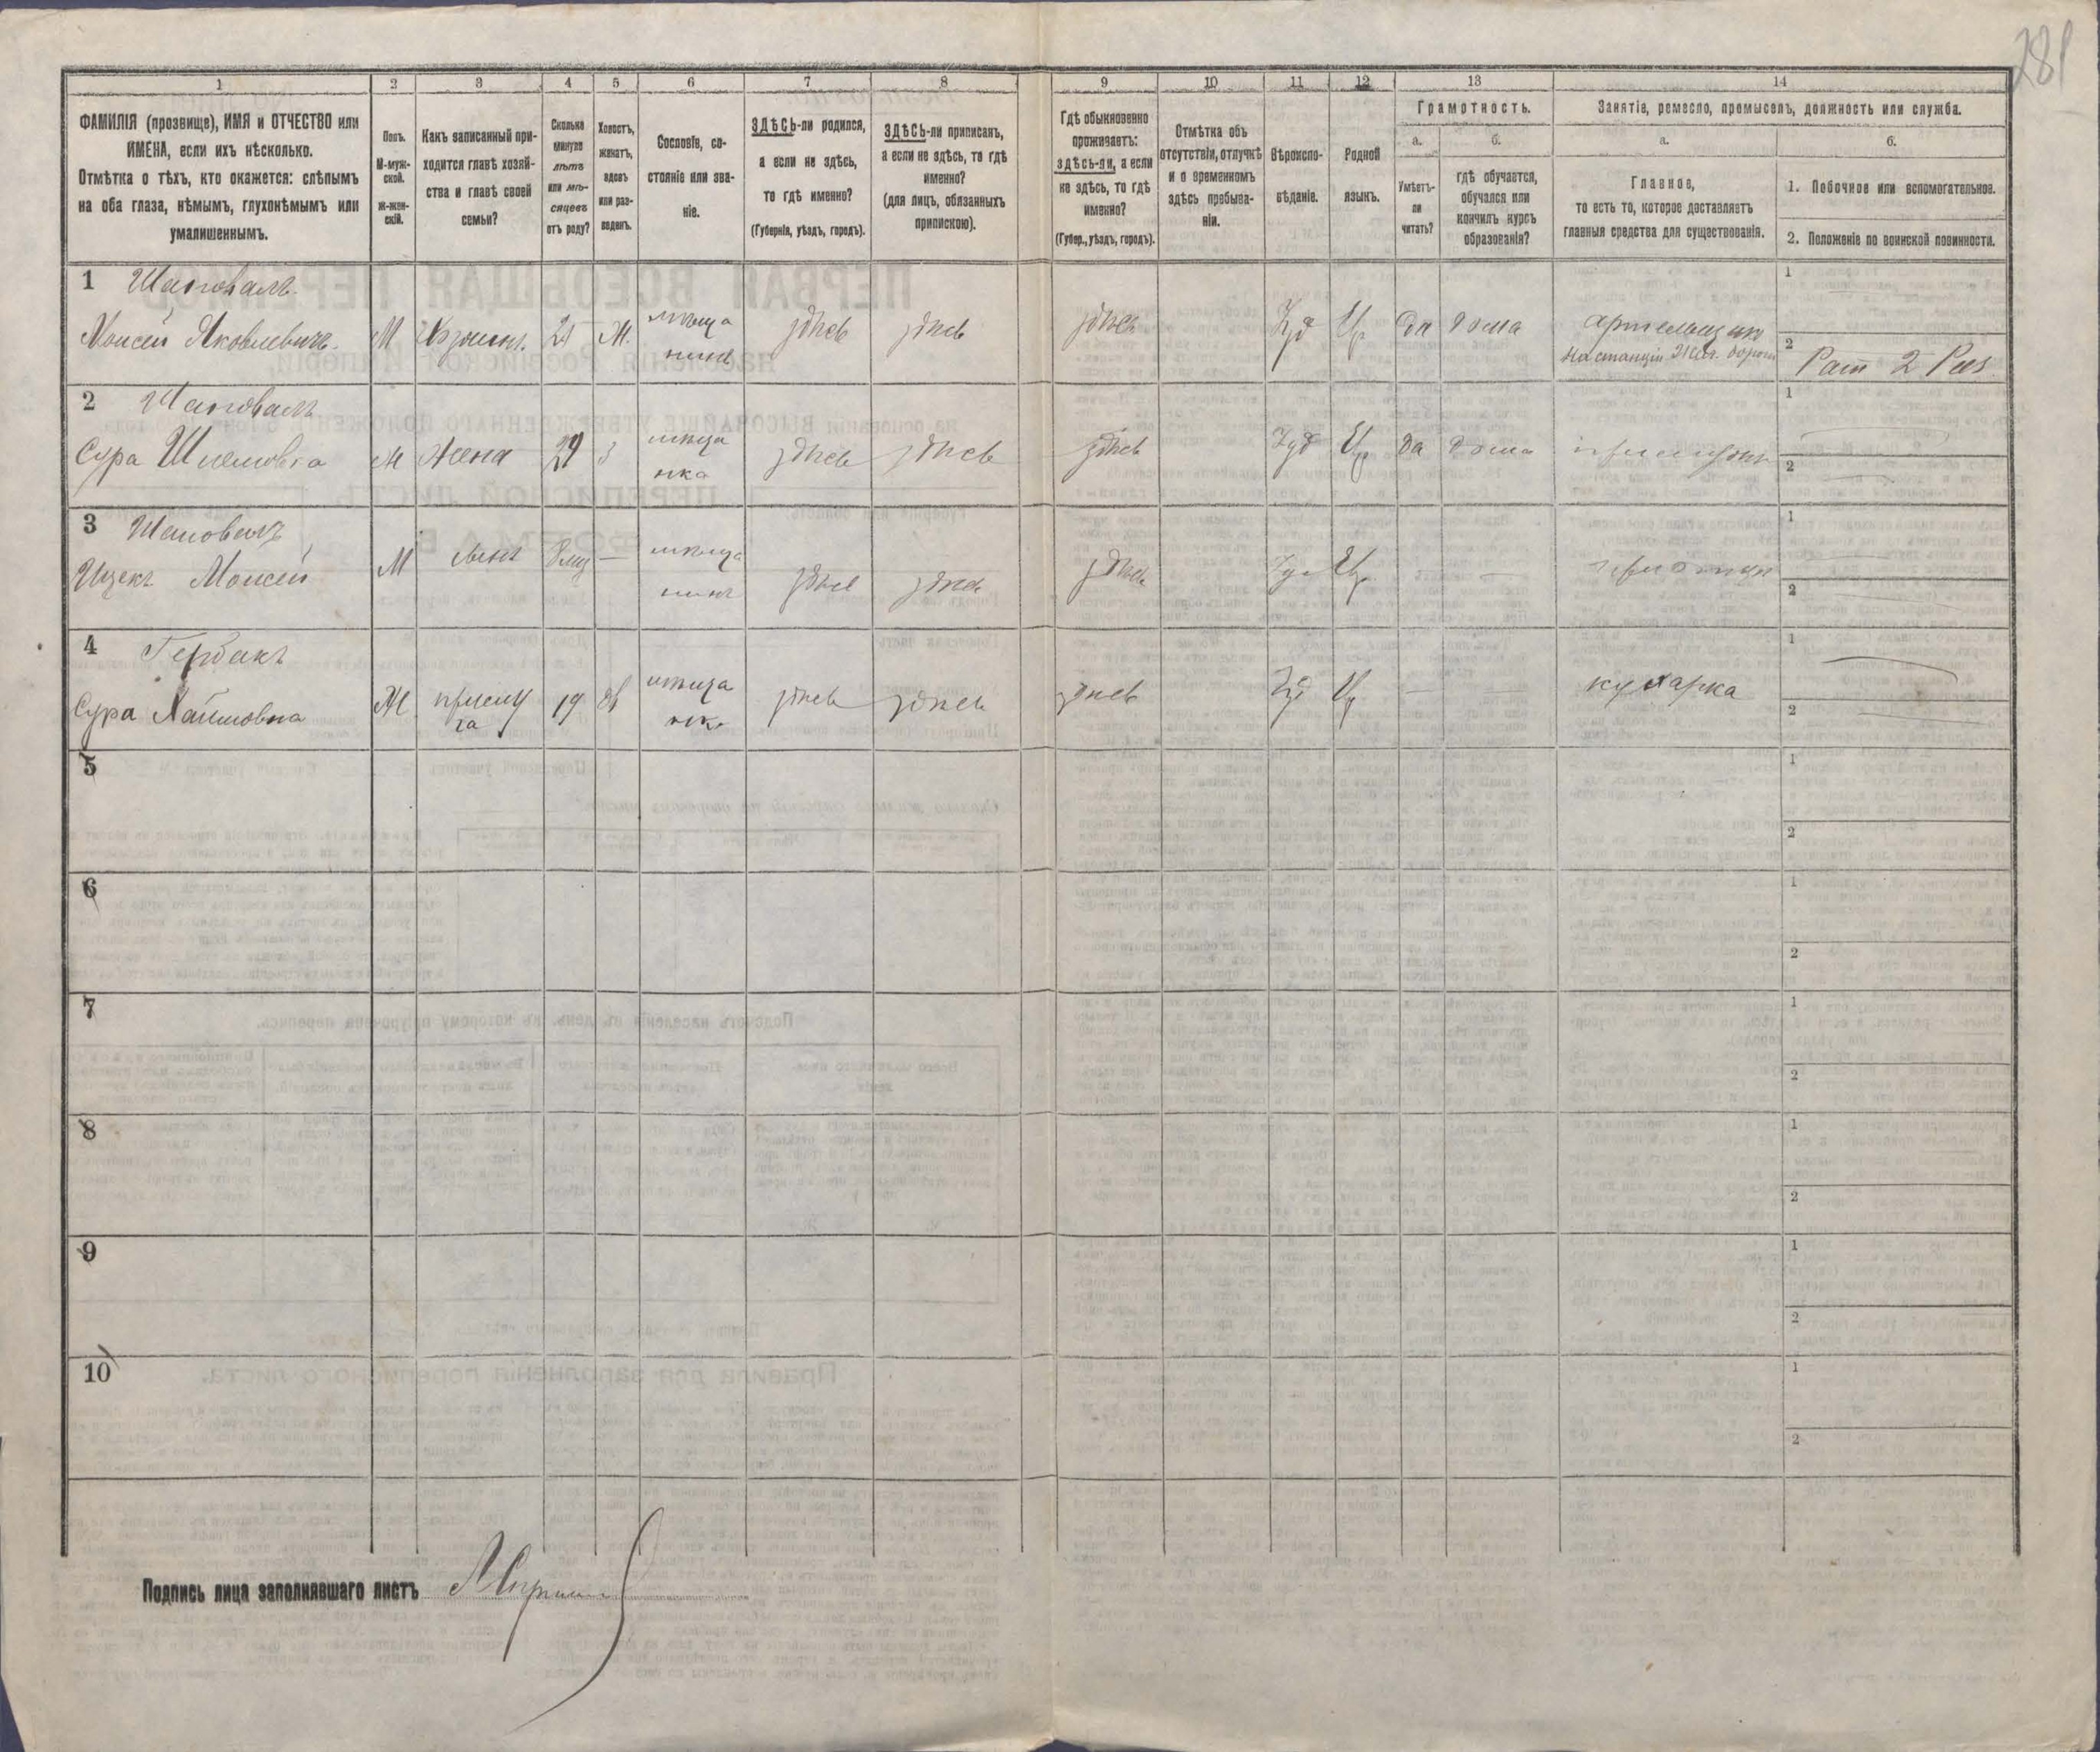 281
1
2
3
4
5
6
7
8
9
10
11
12
13
14
ФАМИЛІЯ (прозвище), ИМЯ и ОТЧЕСТВО или
ИМЕНА, если ихъ нѣсколько.
Отмѣтка о тѣхъ, кто окажется: слѣпымъ
на оба глаза, нѣмымъ, глухонѣмымъ или
умалишеннымъ.
Полъ.
М-муж-
ской.
Ж-жен-
скій.
Какъ записанный при-
ходится главѣ хозяй-
ства и главѣ своей
семьи?
Сколько
минуло
лѣтъ
или мѣ-
сяцевъ
отъ роду?
Холостъ,
женатъ,
вдовъ
или раз-
веденъ.
Сословіе, со-
стояніе или зва-
ніе.
ЗДѢСЬ-ли родился,
а если не здѣсь,
то гдѣ именно?
(Губернія, уѣздъ, городъ).
ЗДѢСЬ-ли приписанъ,
а если не здѣсь, то гдѣ
именно?
(для лицъ, обязанныхъ
припискою).
Гдѣ обыкновенно
проживаетъ:
здѣсь-ли, а если
не здѣсь, то гдѣ
именно?
(Губер., уѣздъ, городъ).
Отмѣтка объ
отсутствіи, отлучкѣ
и о временномъ
здѣсь пребыва-
ніи.
Вѣроиспо-
вѣданіе.
Родной
языкъ.
Грамотность.
а.
Умѣетъ-
ли
читать?
б.
гдѣ обучается,
обучался или
кончилъ курсъ
образованія?
Занятіе, ремесло, промыселъ, должность или служба.
а.
Главное,
то есть то, которое доставляетъ
главныя средства для существованія.
б.
1. Побочное или вспомогательное.
2. Положеніе по воинской повинности.
1 Шаповалъ
Моисей Яковлевичъ М Хозяинъ Ж. мѣща
нинъ здѣсь здѣсь здѣсь Іуд Евр да дома
на станціи
1
2
2 Шаповалъ
Сура Жена З мѣща
нка здѣсь здѣсь здѣсь Іуд Евр да дома
1
2
3 Шаповалъ
Ицекъ Моисей М сынъ — мѣща
нинъ здѣсь здѣсь здѣсь Іуд Евр - —
1
2
4
Сура Хаимовна Ж прислу
га 19 мѣща
нка здѣсь здѣсь здѣсь Іуд Евр — кухарка
1
2
5
1
2
6
1
2
7
1
2
8
1
2
9
1
2
10
1
2
Подпись лица заполнявшаго листъ